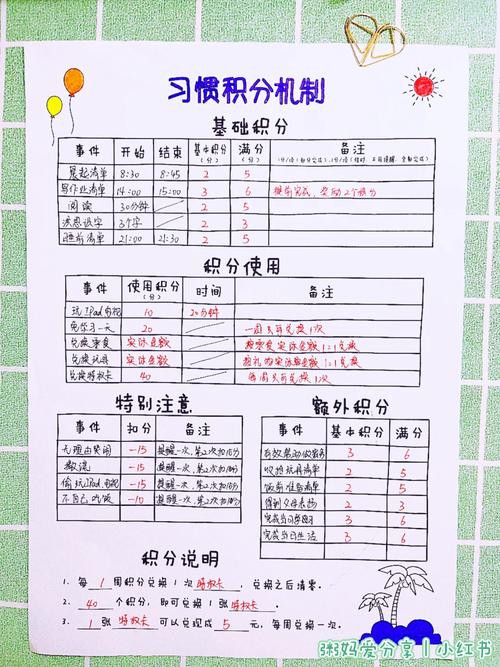 习惯积分机制
基础积分
事件 开始 结束 基本积分(分) 满分(分) 备注
晨起清单 8:30 8:45 2 5
写作业清单 14:00 15:00 3 6 提前完成，奖励2个积分
阅读 30分钟 2 5
洪恩识字 3个字 2 3
睡前清单 21:00 21:30 2 5
积分使用
事件 使用积分(分) 时间 备注
玩iPad/电视 10 20分钟
免学习一天 20 一周只可兑换1次
兑换零食 实际金额 按零食实际金额1:1兑换
兑换玩具 实际金额 按礼物实际金额1:1兑换
兑换特权卡 40 每周只可兑换1次
特别注意
事件 扣分 备注
无理由哭闹 -15 提醒一次，第2次扣15分
撒谎 -15 提醒一次，第2次扣15分
偷玩iPad、电视 -15 提醒一次，第2次扣15分
不自己吃饭 -10 提醒一次，第2次扣10分
额外积分
事件 基本积分 满分
有效帮助做家务 3 6
收拾玩具清单 2 5
饭前准备清单 2 5
得到父母表扬 2 3
完成当日学习 3 6
完成当日生活 3 6
积分说明
1、每 1 周积分兑换1次 特权卡，兑换之后清零。
2、40 个积分，即可兑换1张 特权卡。
3、1 张 特权卡 可以兑现成 5 元，每周兑换一次。
粥妈爱分享丨小红书